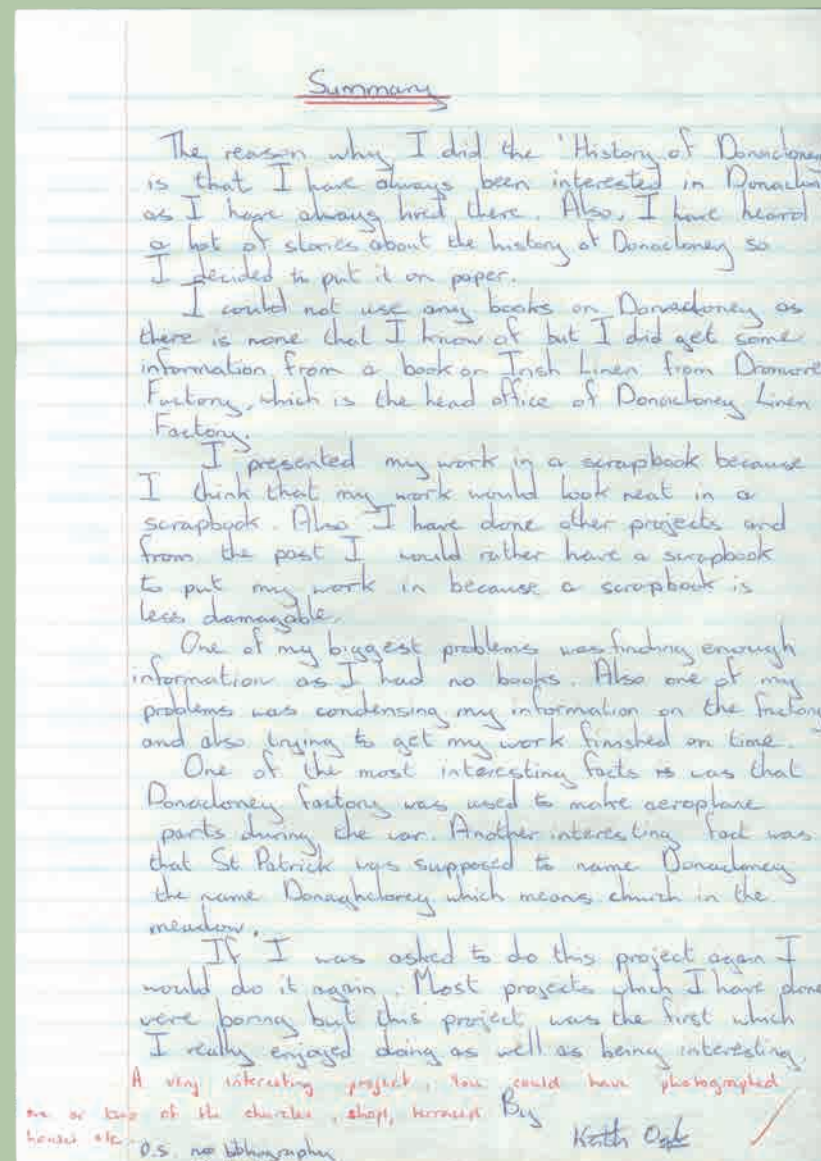 Summary
The reason why I did the 'History of Donacloney
is that I have always been interested in
as I have always lived there. Also, I have heard
a lot of stories about the history of Donacloney so
I decided to put it on paper.
I could not use any books on Donacloney as
there is none that I know of but I did get some
information from a book on Irish Linen from Dromore
Factory, which is the head office of Donacloney Linen
Factory.
I presented my work in a scrapbook because
I think that my work would look neat in a
scrapbook. Also I have done other projects and
from the past I would rather have a scrapbook
to put my work in because a scrapbook is
less damagable.
One of my biggest problems was finding enough
information as I had no books. Also one of my
problems was condensing my information on the factory
and also trying to get my work finished on time.
One of the most interesting facts is was that
Donacloney factory was used to make aeroplane
parts during the war. Another interesting fact was
that St Patrick was supposed to name Donacloney
the name Donaghcloney which means church in the
meadow.
If I was asked to do this project again I
would do it again. Most projects which I have done
were boring but this project was the first which
I really enjoyed doing as well as being interesting.
A very interesting project, You could have photographed
one or two of the churches, shop, terraced
houses etc.
By
Keith Ogle
P.S. no bibliography